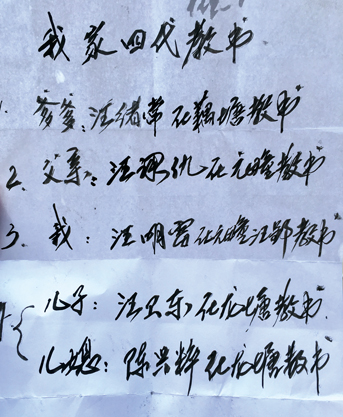 我家四代教书
1. 爹爹:汪绪常在藕塘教书
2. 父亲:汪 在元瞻教书
3. 我:汪明 在 汪郢教书
4. 儿子:汪卫东在龙塘教书
儿媳:陈兴粹在龙塘教书